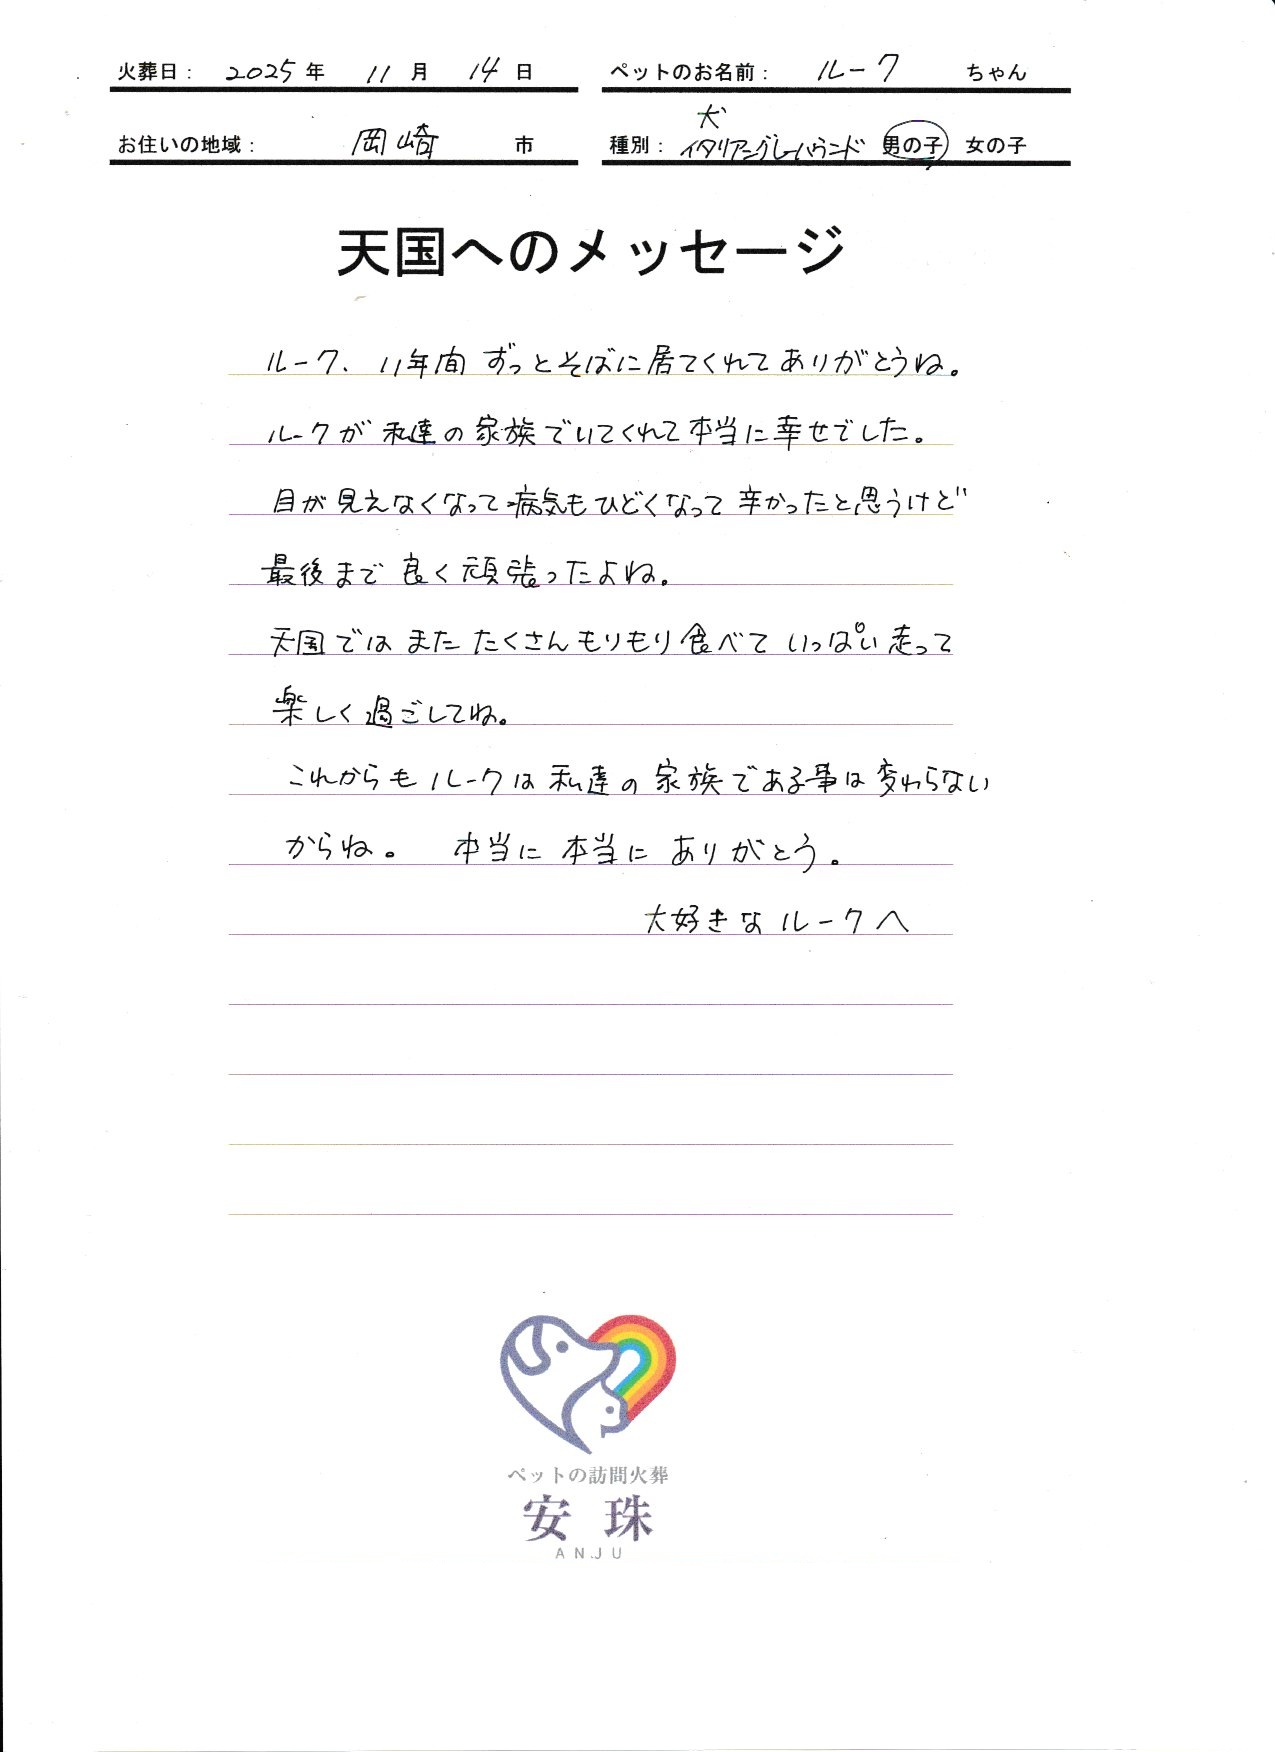 火葬日： 2025 年 11 月 14 日 ペットのお名前： ルーク ちゃん
お住いの地域： 岡崎 市 種別： 犬 イタリアングレーハウンド 男の子 女の子
天国へのメッセージ
ルーク、11年間 ずっとそばに居てくれて ありがとうね。
ルークが 私達の家族でいてくれて本当に幸せでした。
目が見えなくなって病気もひどくなって 辛かったと思うけど
最後まで 良く頑張ったよね。
天国では また たくさん もりもり 食べて いっぱい 走って
楽しく過ごしてね。
これからも ルークは 私達の 家族である事は変わらない
からね。 本当に 本当に ありがとう。
大好きな ルークへ
ペットの訪問火葬
安珠
ANJU